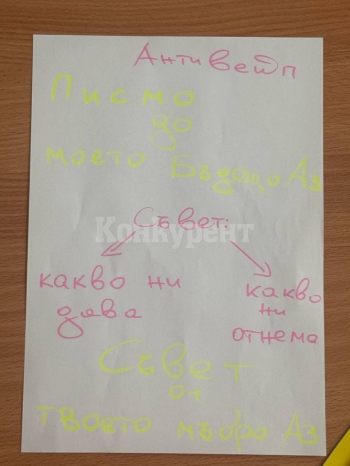 Антивейп
Писмо
до
моето Бъдещо Аз
Съвет:
Конкурент
какво ни
дава
какво
ни
отнема
Съвет
от
твоето мъдро Аз